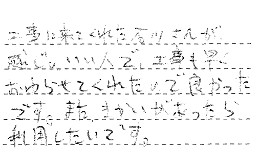 工事に来てくれた香川さんが
感じのいい人で、工事も早く
おわらせてくれたので良かった
です。また、きかいがあったら
利用したいです。